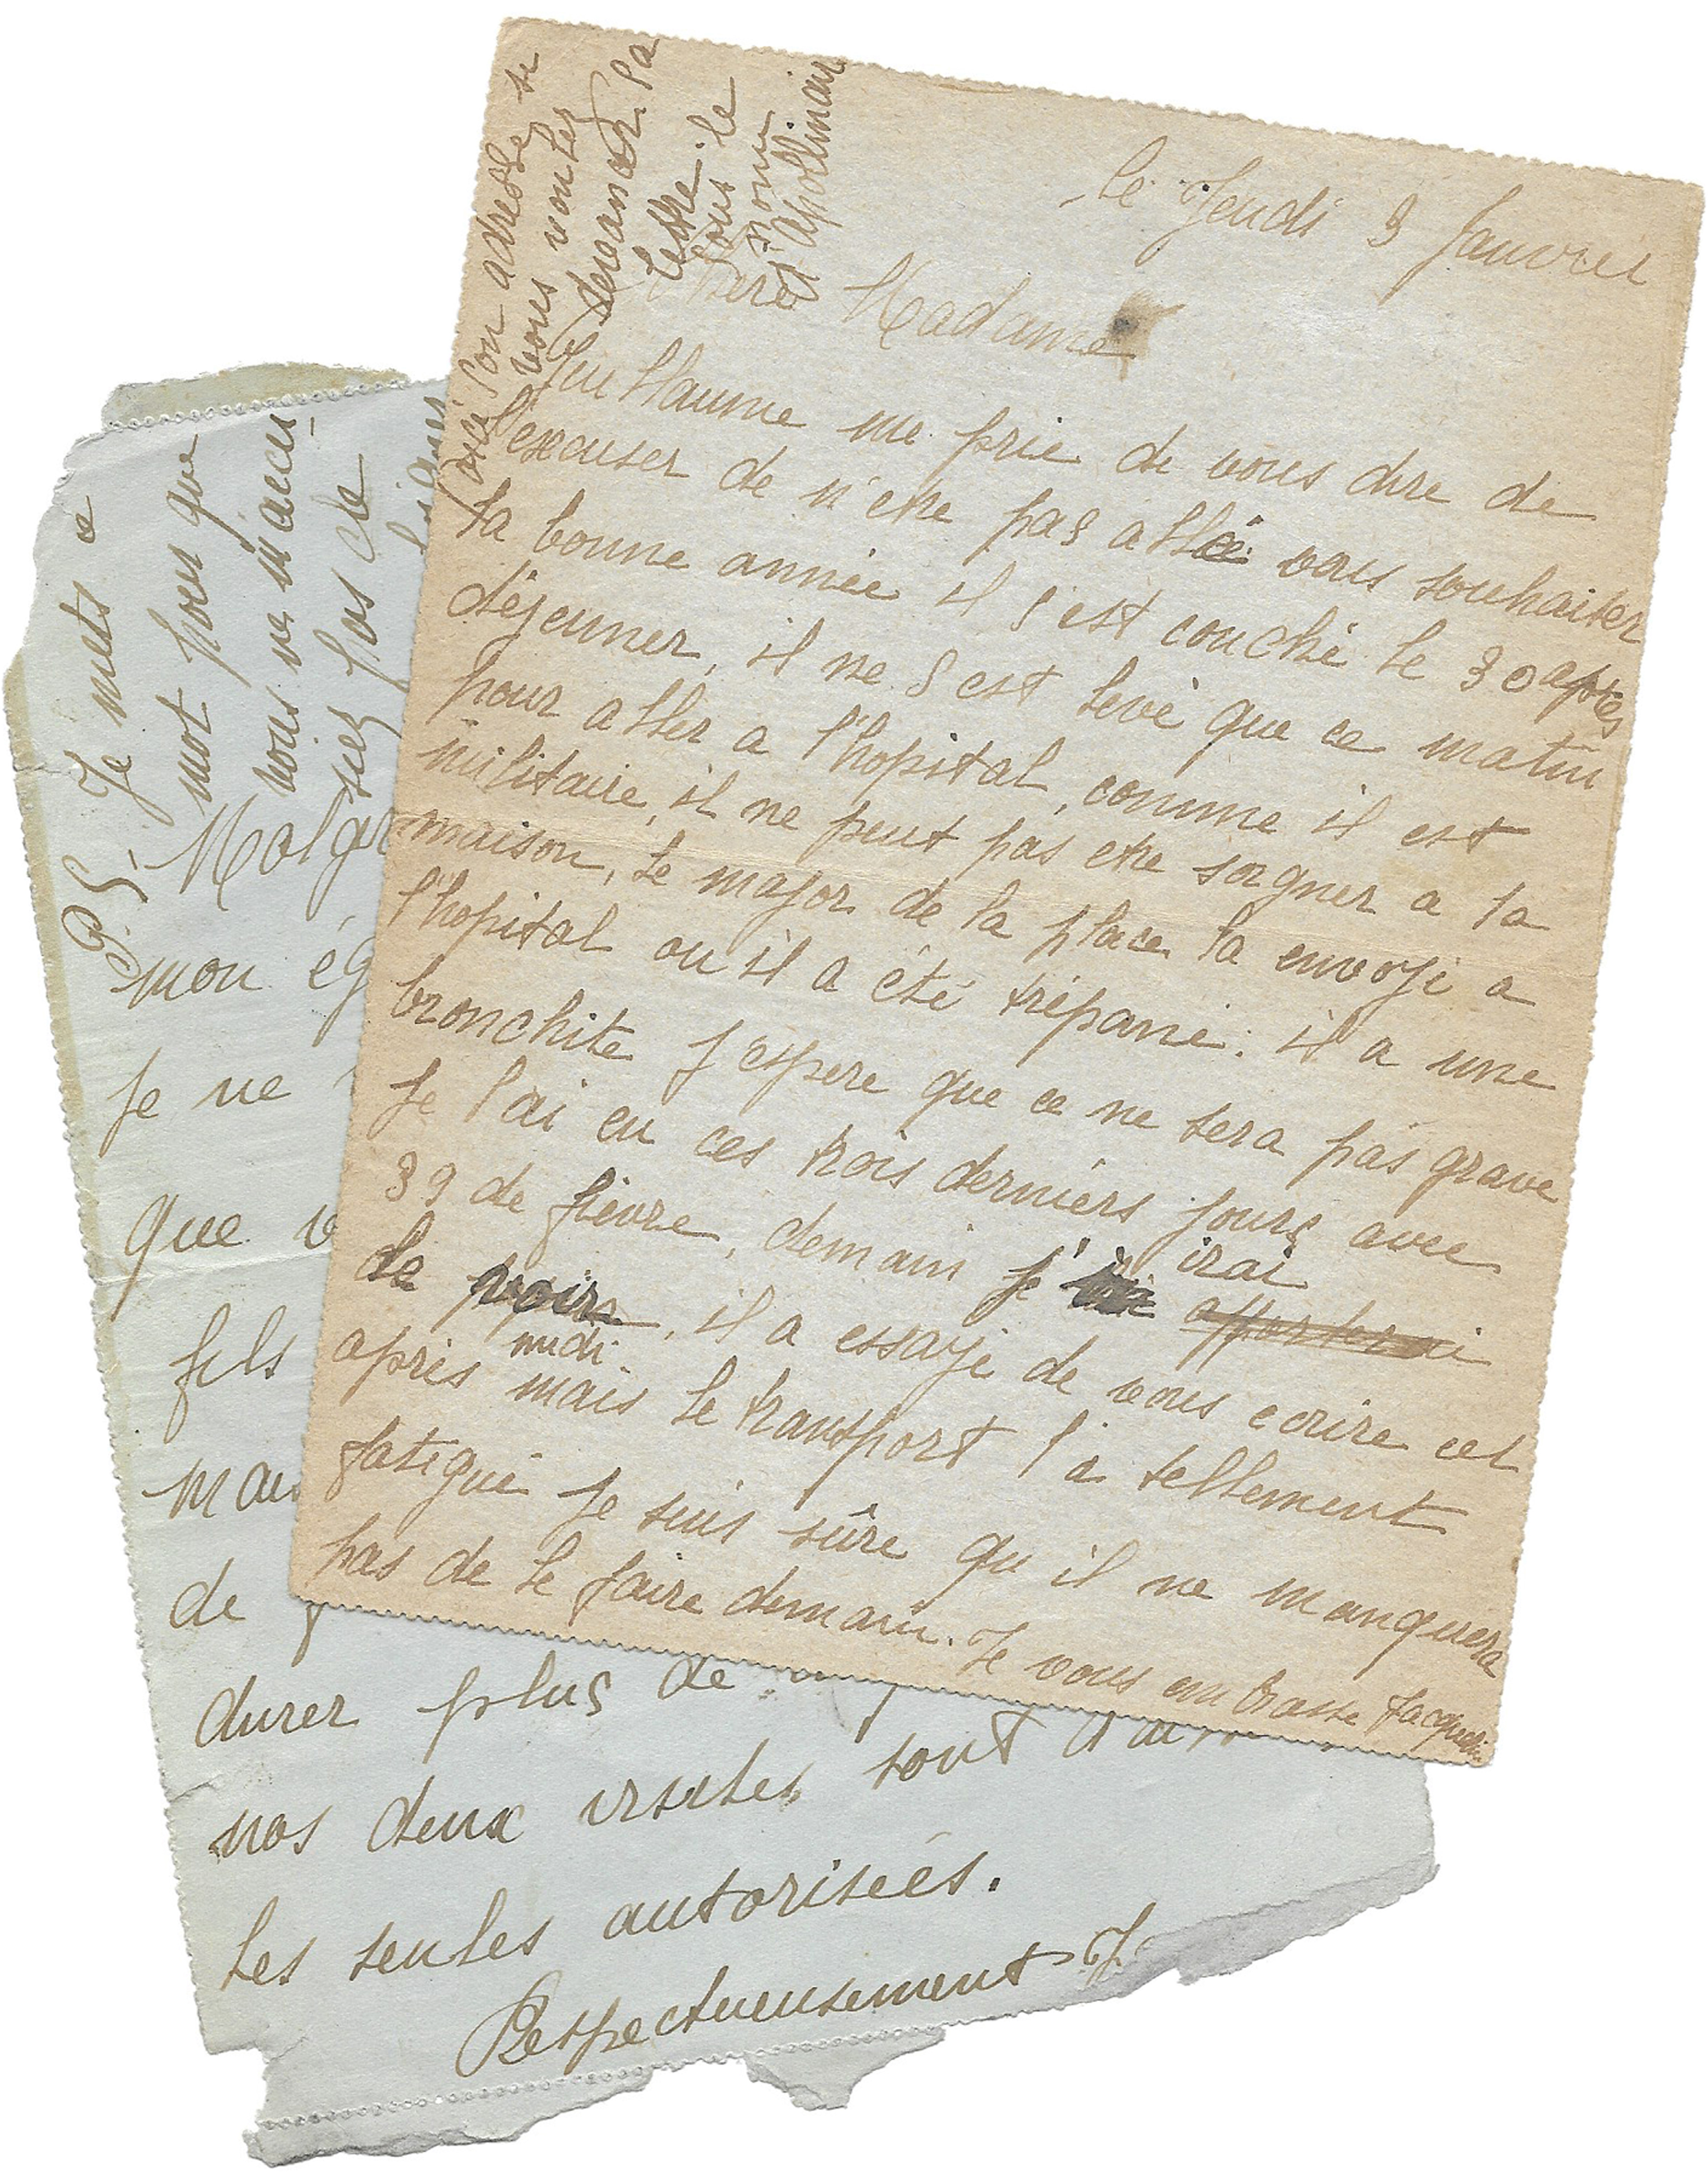 le Jeudi 3 Janvier
Chère Madame
Guillaume me prie de vous dire de
l'excuser de n'etre pas allé vous souhaiter
la bonne année il s'est couché le 30 apres
déjeuner, il ne s'est levé que ce matin
pour aller a l'hopital, comme il est
militaire, il ne peut pas etre soigner a la
maison, le major de la place la envoyé a
l'hopital ou il a été trépané. il a une
bronchite j'espere que ce ne sera pas grave
je l'ai eu ces trois derniers jours avec
39 de fièvre, demain j'irai
le voir, il a essayé de vous ecrire cet
après midi mais le transport l'a tellement
fatigué je suis sûre qu'il ne manquera
pas de le faire demain. Je vous embrasse Jacqueline
voici son adresse si
vous voulez
demander. la
lettre. le
sous le
nom
d'Apollinaire
P.S. Je mets ce
mot pour que
vous ne m'accu
siez pas de
Malgré
mon ég
je ne
que v
fils
mais
de
durer plus de
nos deux visites sont
les seules autorisées.
Respectueusement J.